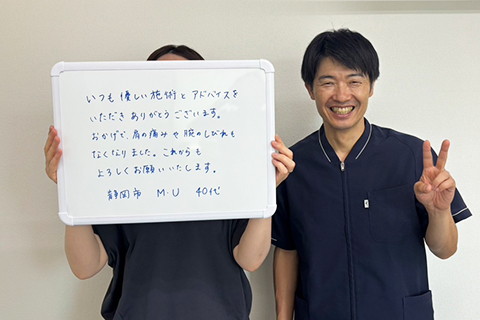 いつも優しい施術とアドバイスを
いただきありがとうございます。
おかげで、肩の痛みや腕のしびれも
なくなりました。これからも
よろしくお願いいたします。
静岡市 M・U 40代